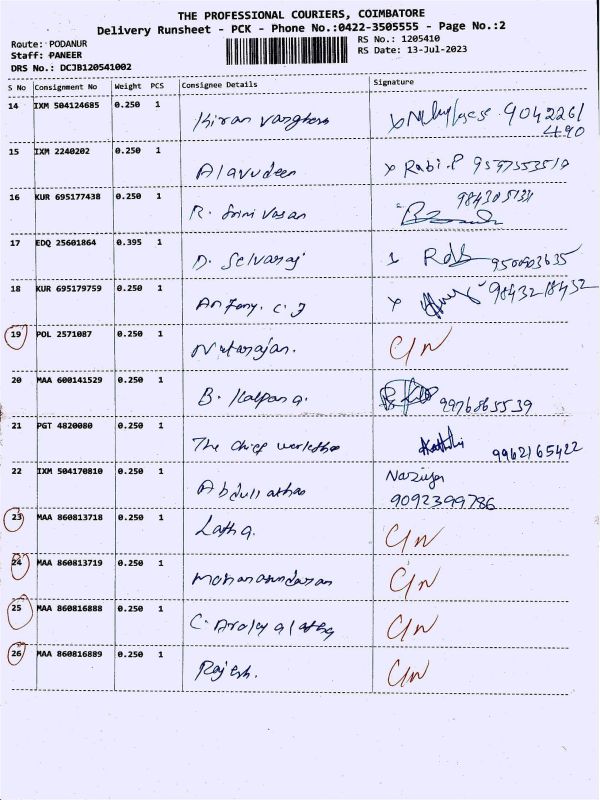 THE PROFESSIONAL COURIERS, COIMBATORE
Delivery Runsheet - PCK - Phone No.:0422-3505555 - Page No.:2
Route: PODANUR
RS No.: 1205410
Staff: PANEER
RS Date: 13-Jul-2023
DRS No.: DCJB120541002
S No Consignment No Weight PCS Consignee Details Signature
14 IXM 504124685 0.250 1 Kiran 9042261
490
15 IXM 2240202 0.250 1 Alavudeen x Rabi.P
16 KUR 695177438 0.250 1 R. Srini vasan
17 EDQ 25601864 0.395 1 D. Selvaraj
18 KUR 695179759 0.250 1 Antony. C. J x 9843218452
19 POL 2571087 0.250 1 Natarajan. C/N
20 MAA 600141529 0.250 1 B. Kalpana. 9976865539
21 PGT 4820080 0.250 1 The Chief 9962165422
22 IXM 504170810 0.250 1 Naziya
9092399786
23 MAA 860813718 0.250 1 Latha. C/N
24 MAA 860813719 0.250 1 C/N
25 MAA 860816888 0.250 1 C. C/N
26 MAA 860816889 0.250 1 Rajesh. C/N